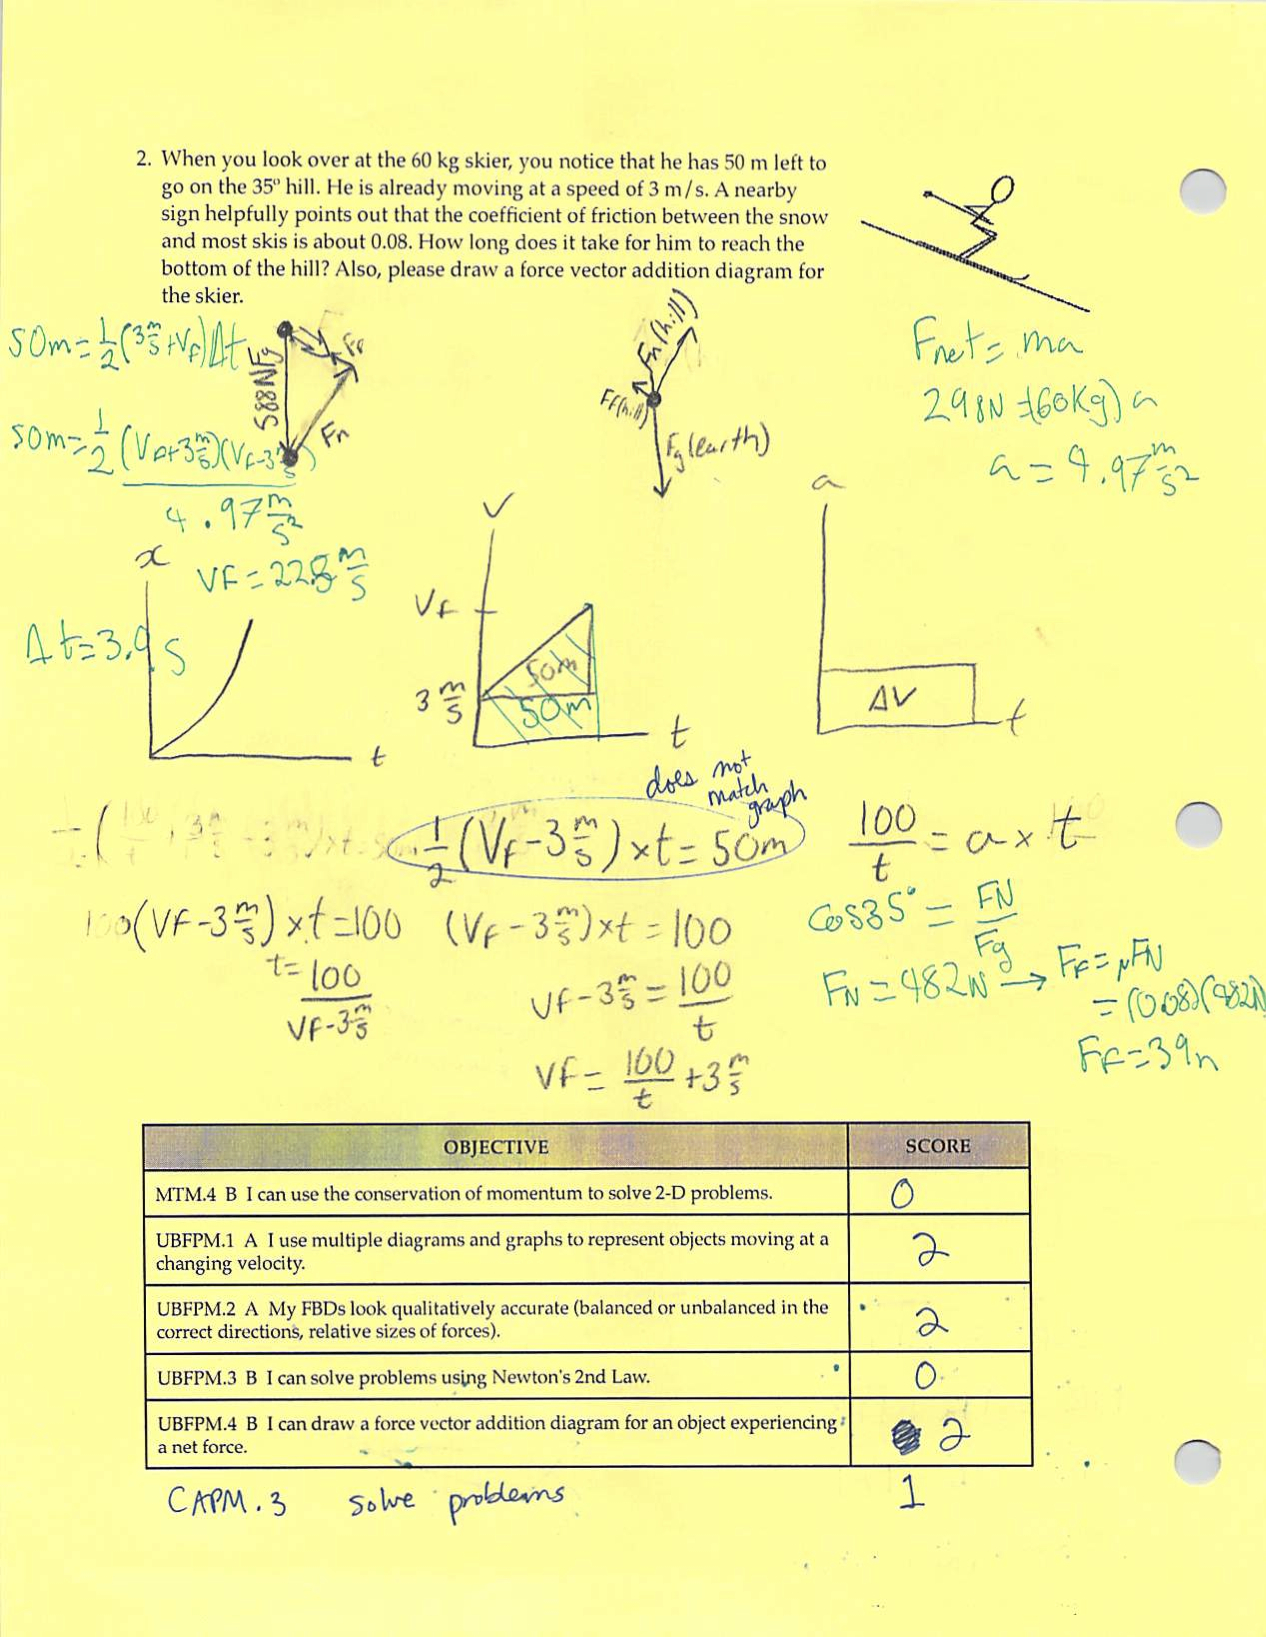 2. When you look over at the 60 kg skier, you notice that he has 50 m left to
go on the 35° hill. He is already moving at a speed of 3 m/s. A nearby
sign helpfully points out that the coefficient of friction between the snow
and most skis is about 0.08. How long does it take for him to reach the
bottom of the hill? Also, please draw a force vector addition diagram for
the skier.
50m = 1/2 (3 m/s + Vf) Δt
588N Fg
Ff
Fn
50m = 1/2 (Vf+3 m/s)(Vf-3 m/s) / 4.97 m/s²
Vf = 22.8 m/s
Δt = 3.9 s
Fn (hill)
Ff (hill)
Fg (earth)
Fnet = ma
298N = (60Kg) a
a = 4.97 m/s²
x
t
v
Vf
3 m/s
50m
50m
t
a
ΔV
t
does not
match
graph
1/2 (Vf - 3 m/s) × t = 50m
100/t = a × t
100(Vf - 3 m/s) × t = 100
t = 100 / (Vf - 3 m/s)
(Vf - 3 m/s) × t = 100
Vf - 3 m/s = 100/t
Vf = 100/t + 3 m/s
cos35° = FN/Fg
FN = 482N → Ff = μFN
= (0.08)(482N)
Ff = 39n
OBJECTIVE SCORE
MTM.4 B I can use the conservation of momentum to solve 2-D problems. 0
UBFPM.1 A I use multiple diagrams and graphs to represent objects moving at a
changing velocity. 2
UBFPM.2 A My FBDs look qualitatively accurate (balanced or unbalanced in the
correct directions, relative sizes of forces). 2
UBFPM.3 B I can solve problems using Newton's 2nd Law. 0
UBFPM.4 B I can draw a force vector addition diagram for an object experiencing
a net force. 2
CAPM.3 solve problems 1